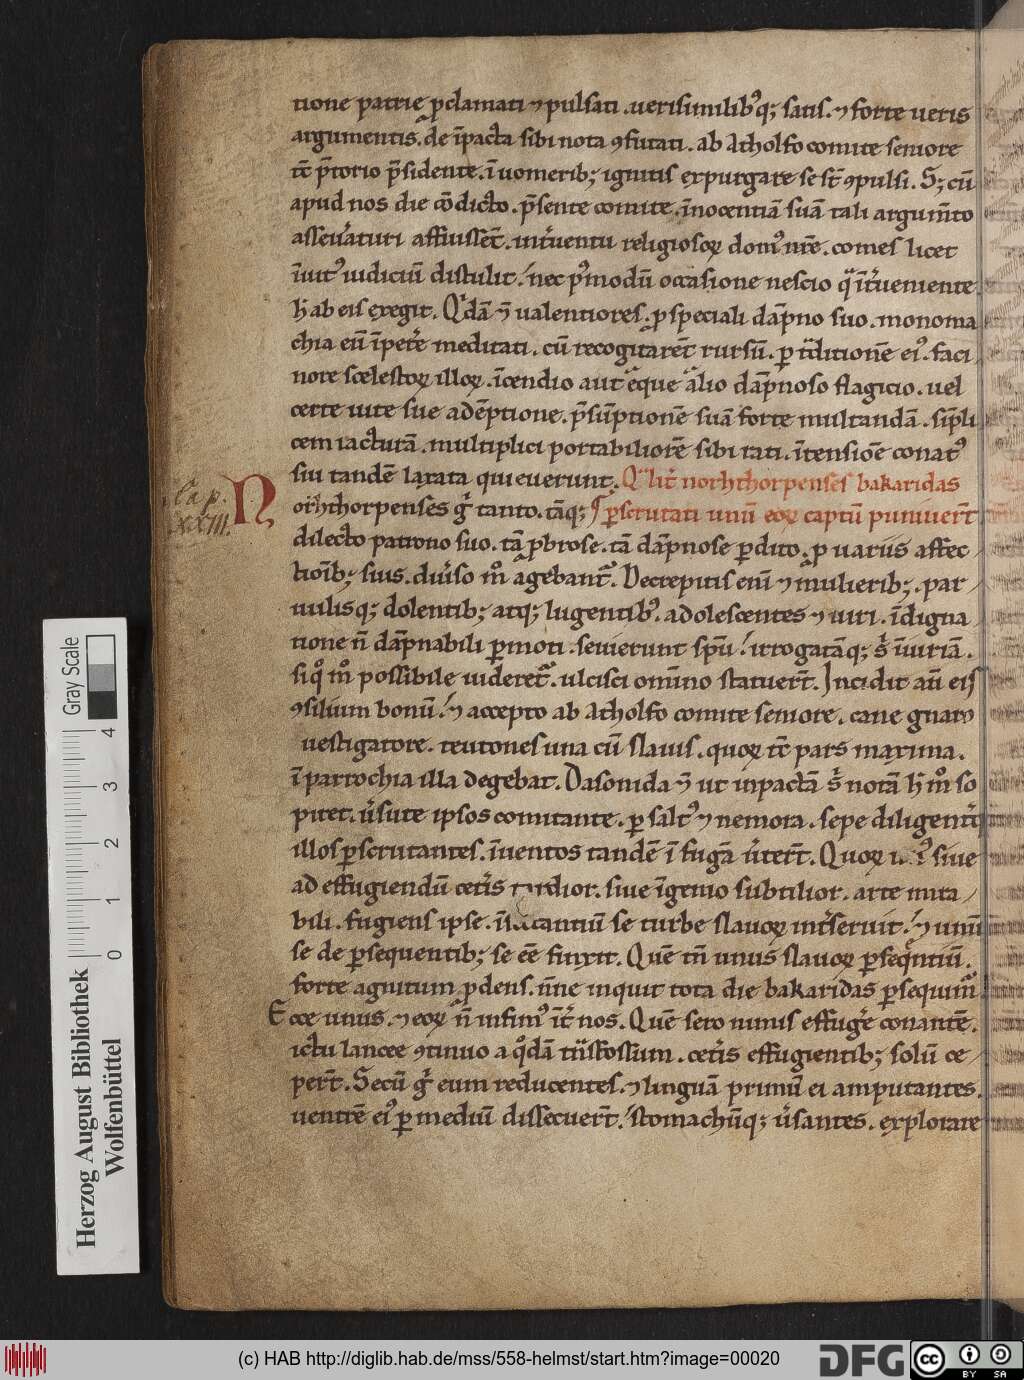 tione patrie p̱clamati ⁊ pulsati . uerisimilib9q; satis . ⁊ forte ueris
argumentis . de īpacta sibi nota ꝯfutati . ab Atholfo comite seniore
tc̄ p̄torio p̄sidente . ī uomerib; ignitis expurgare se st̄ ꝯpulsi . S; cū
apud nos die cōdicto . p̄sente comite . īnocentiā suā tali argum̄to
asseuaturi affuissēt . int̓uentu religiosoꝝ dom9 nr̄e . comes licet
īuit9 iudiciū distulit . nec p9modū occasione nescio q̄ īt̓ueniente
h̓ ab eis exegit . Q'dā ⁊ ualentiores . ꝓ speciali dāpno suo . monoma
chia eū īpet̓e meditati . cū recogitarēt rursū . ꝑ t̓ditionē ei9 . faci
nore scelestoꝝ illoꝝ . īcendio aut eque alio dāpnoso flagicio . uel
certe uite sue adēptione . p̄sūptionē suā forte multandā . sīpli
cem iacturā . multiplici portabiliorē sibi rati . ītensiōe conat9
sui tandē laxata quieuerunt . Qalit̓ norhthorpenses bakaridas
Cap.
XXIII.
N
orhthorpenses g̓ tanto . tāq; ꝑscrutati unū eoꝝ captū puniuer̄t
dilecto patrono suo . tā ꝓbrose . tā dāpnose ꝑdito . ꝓ uariis affec
tioīb; suis . diu̓so m̊ agebant᷑ . Decrepitis eni ⁊ mulierib; . par
uulisq; dolentib; atq; lugentib9 . adolescentes ⁊ uiri . īdigna
tione n̄ dāpnabili ꝑmoti . seuierunt spū . irrogatāq; s̓ iniuriā .
siq̊ m̊ possibile uideret᷑ . ulcisci omīno statuer̄t . Incidit aū eis
ꝯsilium bonū . ⁊ accepto ab Atholfo comite seniore . cane gnaro
uestigatore . teutones una cū slauis . quoꝝ tc̄ pars maxima .
ī parrochia illa degebat . Dasonida ⁊ ut inpactā s̓ notā h̓ m̊ so
piret . u̓sute ipsos comitante . ꝑ salt9 ⁊ nemora . sepe diligent̓
illos ꝑscrutantes . īuentos tandē ī fugā u̓ter̄t . Quoꝝ siue
ad effugiendū cet̓is . siue īgenio subtilior . arte mira
bili . fugiens ipse . se turbe slauoꝝ int̓seruit . ⁊ unū
se de ꝑsequentib; se eē finxit . Quē tn̄ unus slauoꝝ ꝑseqntiū .
forte agnitum ꝓdens . n̄ne inquit tota die bakaridas ꝑsequim᷑ .
Ecce unus . ⁊ eoꝝ n̄ infim9 īt̓ nos . Quē sero nimis effug̓e conantē .
ictu lancee ꝯtinuo a q̊dā tr̄sfossum . cet̓is effugientib; solū ce
per̄t . Secū g̓ eum reducentes . ⁊ linguā primū ei amputantes .
uentrē ei9 ꝑ mediū dissecuer̄t . stomachūq; u̓santes . explorare
Gray Scale
0 1 2 3 4
Herzog August Bibliothek
Wolfenbüttel
(c) HAB http://diglib.hab.de/mss/558-helmst/start.htm?image=00020
DFG
cc
BY SA